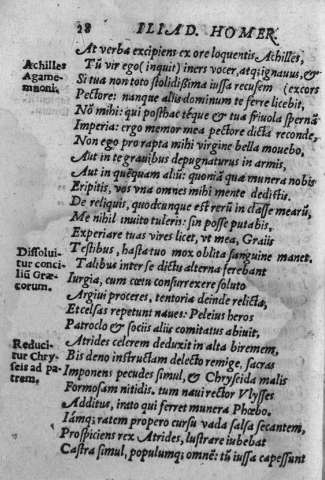 28 ILIAD. HOMER.
At verba excipiens ex ore loquentis Achilles,
Achilles
Agame-
mnoni.
Tũ vir ego (inquit) iners vocer, atq; ignauus, &
(excors
Si tua non toto stolidissima iussa recusem
Pectore: nanque aliis dominum te ferre licebit,
Nõ mihi: qui posthac téque & tua friuola spernã
Imperia: ergo memor mea pectore dicta reconde,
Non ego pro rapta mihi virgine bella mouebo,
Aut in te grauibus depugnaturus in armis,
Aut in quẽquam aliũ: quoniã qua munera nobis
Eripitis, vos vna omnes mihi mente dedistis.
De reliquis, quodcunque est rerũ in classe mearũ,
Me nihil inuito tuleris: sin posse putabis,
Experiare tuas vires licet, vt mea, Graiis
Testibus, hasta tuo mox oblita sanguine manet.
Dissolui-
tur conci-
liũ Græ-
corum.
Talibus inter se dictu alterna ferebant
Iurgia, cum cœtu consurrexere soluto
Argiui proceres, tentoria deinde relicta,
Et celsas repetunt naues: Peleius heros
Patroclo & sociis aliis comitatus abiuit,
Reduci-
tur Chry-
seis ad pa-
trem.
Atrides celerem deduxit in alta biremem,
Bis deno instructam delecto remige, sacras
Imponens pecudes simul, & Chryseida malis
Formosam nitidis. tum naui rector Vlysses
Additus, irato qui ferret munera Phœbo.
Iámq; ratem propero cursu vada salsa secantem,
Prospiciens rex Atrides, lustrare iubebat
Castra simul, populumq; omnẽ: tũ iussa capessunt